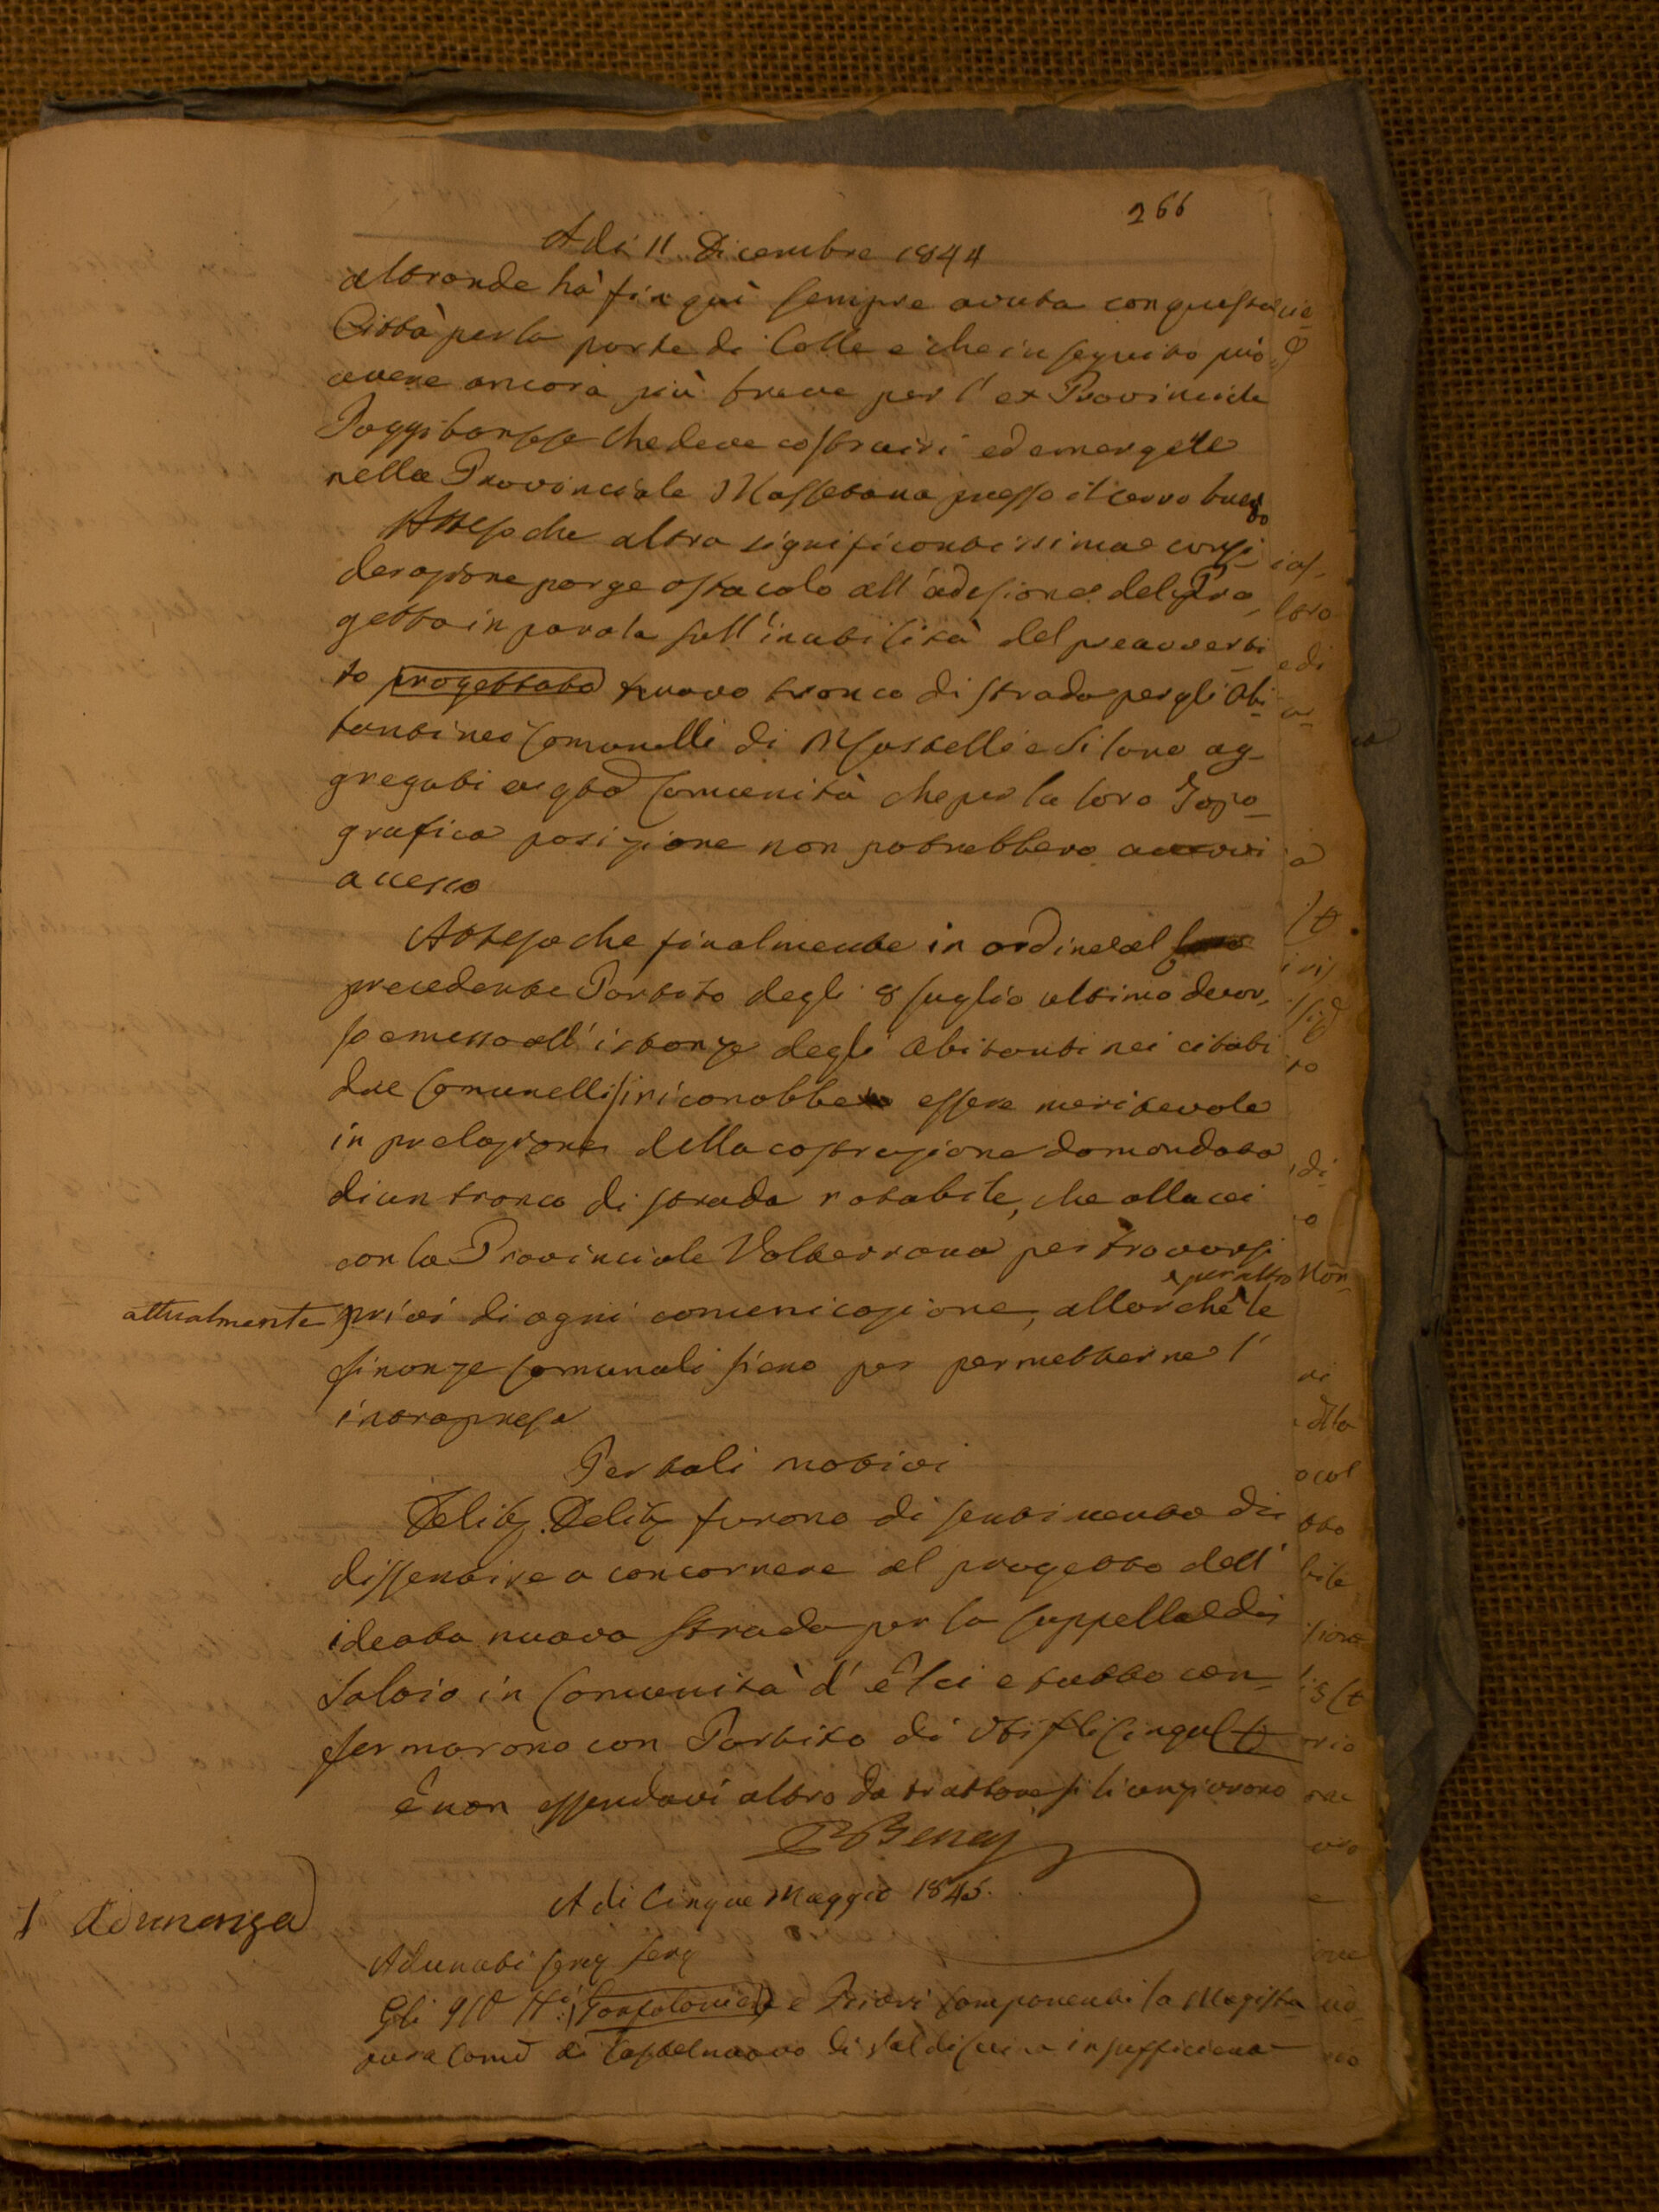 266
Adi 11. Dicembre 1844
altronde hà fin quì sempre avuta con questa
Città per la parte di Colle e che in seguito può
avere ancora più breve per l'ex Provinciale
Poggibonsese che deve costruirsi ed emergere
nella Provinciale Massetana presso il cerro buco
Atteso che altra significantissima consi
derazione porge ostacolo all'adesione del Pro
getto in parola sull'inabilità del preavverti
to progettato nuovo tronco di strada per gli Abi
tanti nei Comunelli di Montalbano e Silano ag
gregati a qta Comunità che per la loro Topo
grafica posizione non potrebbero avervi
accesso
Atteso che finalmente in ordine al
precedente Partito degli 8 Luglio ultimo decor
so emesso all'istanza degli Abitanti nei citati
due Comunelli si riconobbe essere meritevole
in prelazione della costruzione domandata
di un tronco di strada rotabile, che allacci
con la Provinciale Volterrana per trovarsi
attualmente privi di ogni comunicazione, allorchè le
e per altro
finanze Comunali siano per permetterne l'
intrapresa
Per tali motivi
Delib. Delib. furono di sentimento di
dissentire a concorrere al progetto dell'
ideata nuova Strada per la Cappella di
in Comunità d'Elci e tutto con
fermarono con Partito di Voti
E non essendovi altro da trattare si licenziarono
A di Cinque Maggio 1845.
1 Adunanza
Adunati Serv Serv
Gli Gonfaloniere e Priori componenti la Magistra
tura Comd di Castelnuovo di Val di Cecina in sufficiente